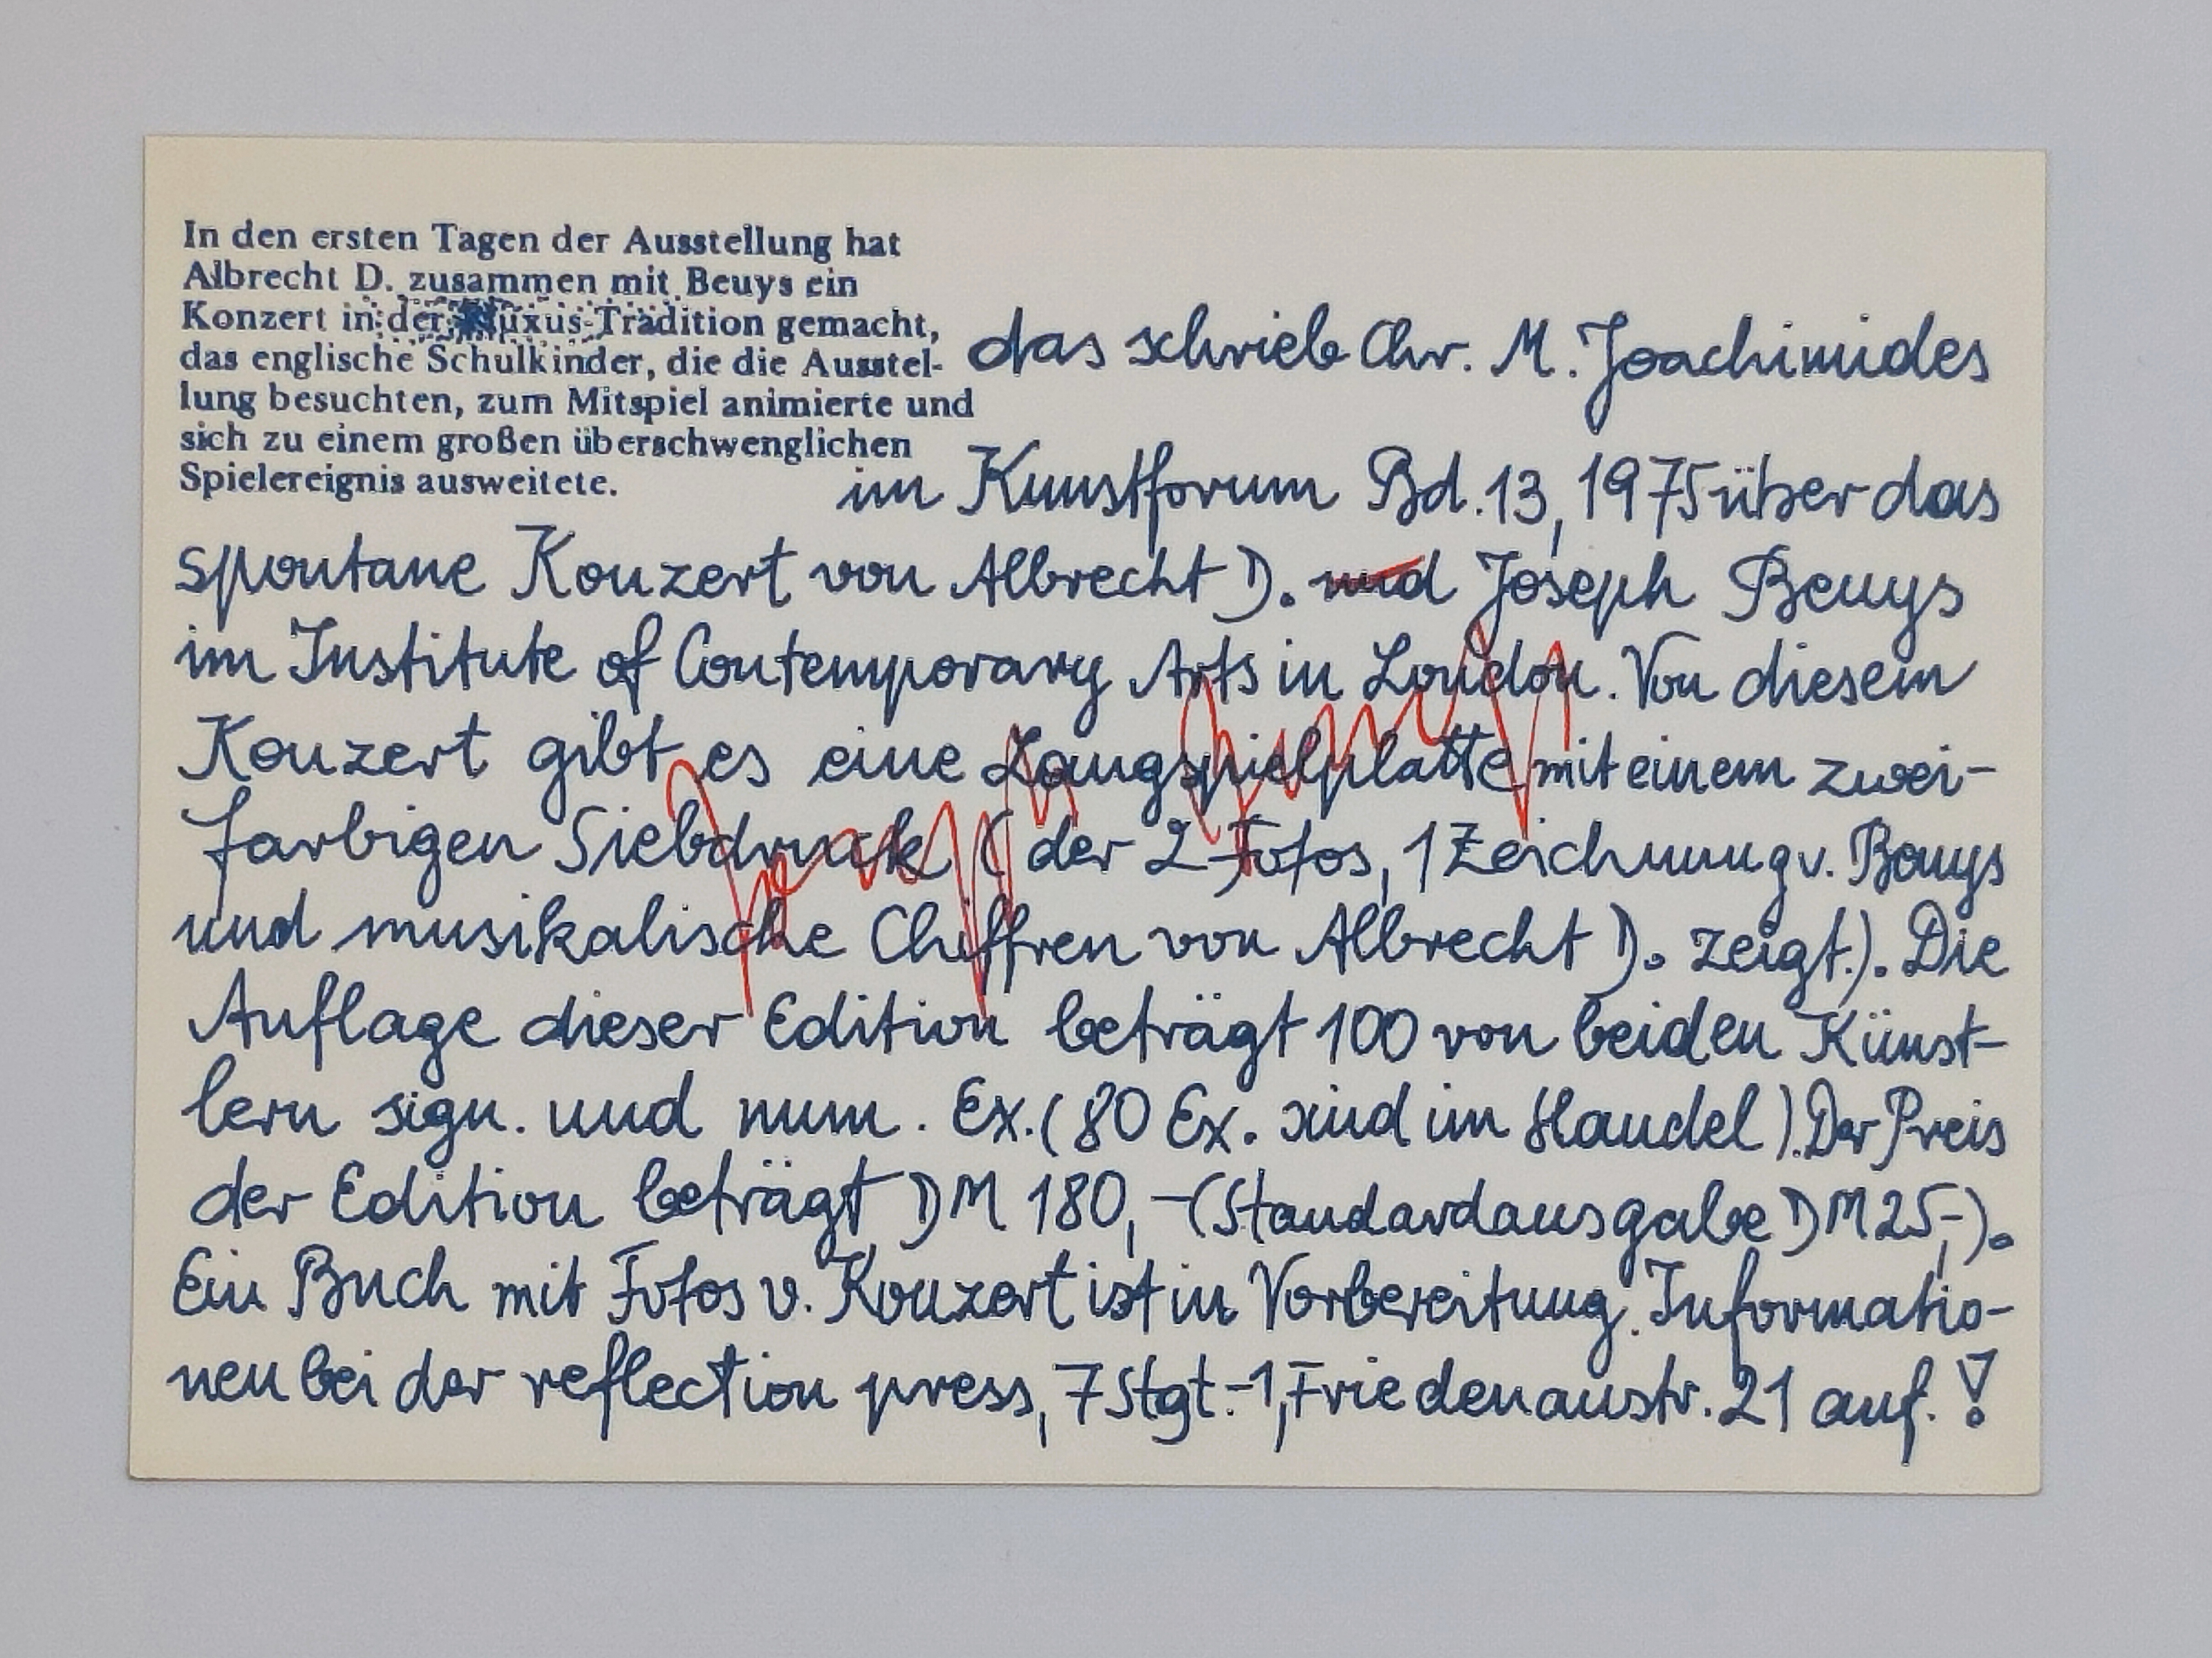 In den ersten Tagen der Ausstellung hat
Albrecht D. zusammen mit Beuys ein
Konzert in der Fluxus-Tradition gemacht,
das englische Schulkinder, die die Ausstel-
lung besuchten, zum Mitspiel animierte und
sich zu einem großen überschwenglichen
Spielereignis ausweitete.
das schrieb Chr. M. Joachimides
im Kunstforum Bd. 13, 1975 über das
spontane Konzert von Albrecht D. und Joseph Beuys
im Institute of Contemporary Arts in London. Von diesem
Konzert gibt es eine Langspielplatte mit einem zwei-
farbigen Siebdruck (der 2 Fotos, 1 Zeichnung v. Beuys
und musikalische Chiffren von Albrecht D. zeigt.). Die
Auflage dieser Edition beträgt 100 von beiden Künst-
lern sign. und num. Ex. (80 Ex. sind im Handel). Der Preis
der Edition beträgt DM 180,- (Standardausgabe DM 25,-).
Ein Buch mit Fotos v. Konzert ist in Vorbereitung. Informatio-
nen bei der reflection press, 7 Stgt.-1, Friedenaustr. 21 auf. !
Joseph Beuys